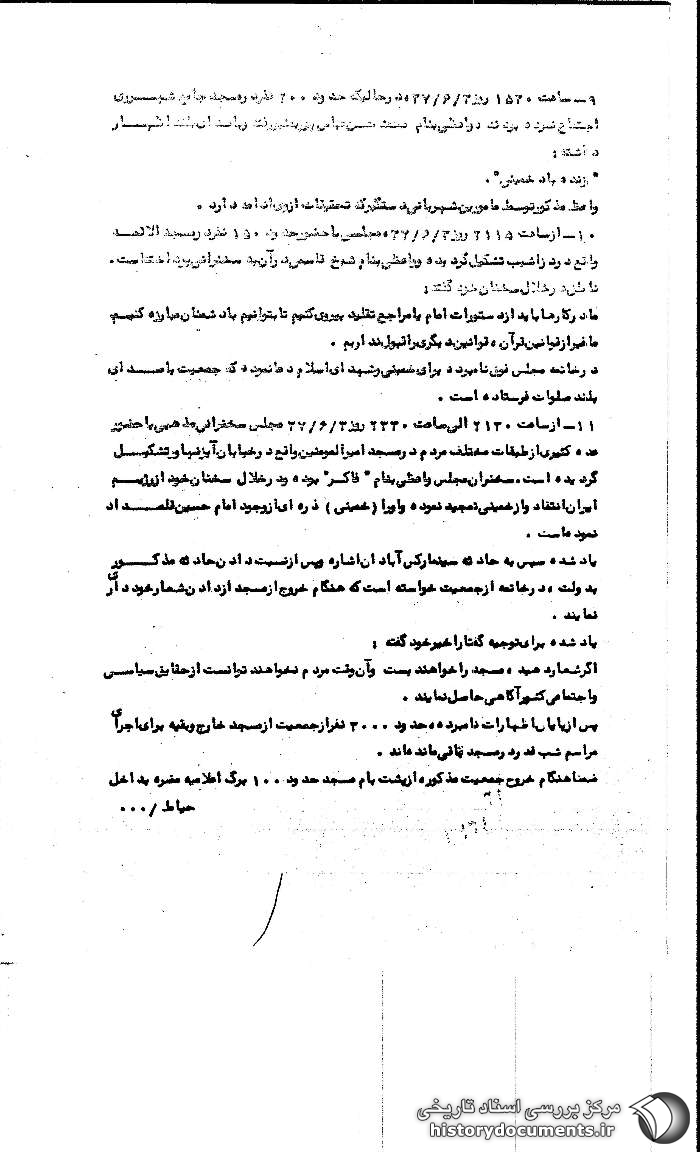 ۹ــ ساعت ۱۵۳۰ روز ۳/۶/۳۷ در حالیکه حدود ۲۰۰ نفر در مسجد جامع شهـــر ری
اجتماع نموده بودند واعظی بنام
داشته :
"زنده باد خمینی" .
واعظ مذکور توسط مامورین شهربانی دستگیر که تحقیقات از وی ادامه دارد .
۱۰ــ از ساعت ۲۱۱۵ روز ۳/۶/۳۷ مجلسی با حضور حدود ۱۵۰ نفر در مسجد
واقع در تشکیل گردیده و واعظی بنام شیخ قاسمی در آن به سخنرانی پرداخته است .
در خلال سخنان خود گفته :
ما در کارها باید از دستورات امام یا مراجع تقلید پیروی کنیم تا بتوانیم با دشمنان مبارزه کنیـم.
ما غیر از قوانین قرآن ، قوانین دیگری را قبول نداریم .
در خاتمه مجلس فوق نامبرده برای خمینی و شهدای اسلام دعا نموده که جمعیت با صـدای
بلند صلوات فرستاده است .
۱۱ــ از ساعت ۲۱۳۰ الی ساعت ۲۳۳۰ روز ۳/۶/۳۷ مجلس سخنرانی مذهبی با حضور
عده کثیری از طبقات مختلف مردم در مسجد امیرالمومنین واقع در خیابان آیزنهاور تشکیـــل
گردیده است ، سخنران مجلس واعظی بنام " فاکر " بوده و در خلال سخنان خود از رژیـــم
ایران انتقاد و از خمینی تمجید نموده و او را (خمینی ) ذره ای از وجود امام حسین قلمــداد
نموده است .
یاد شده سپس به حادثه سینما رکس آبادان اشاره و پس از نسبت دادن حادثه مذکـــور
به دولت ، در خاتمه از جمعیت خواسته است که هنگام خروج از مسجد از دادن شعار خود داری
نمایند .
یاد شده برای توجیه گفتار اخیر خود گفته :
اگر شعار دهید ، مسجد را خواهند بست و آن وقت مردم نخواهند توانست از حقایق سیاســی
و اجتماعی کشور آگاهی حاصل نمایند .
پس از پایان اظهارات نامبرده ، حدود ۳۰۰۰ نفر از جمعیت از مسجد خارج و بقیه برای اجرای
مراسم شب قدر در مسجد باقی مانده اند .
ضمناً هنگام خروج جمعیت مذکور ، از پشت بام مسجد حدود ۱۰۰ برگ اعلامیه مضره بداخل
حیاط /۰۰۰
مرکز بررسی اسناد تاریخی
historydocuments.ir